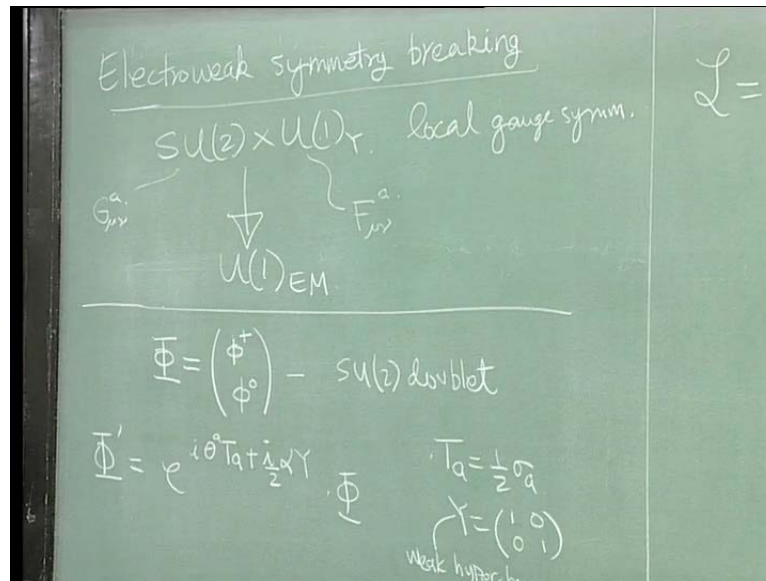 Electroweak symmetry breaking
SU(2) × U(1)_Y. local gauge symm.
G^a_μν F^a_μν
U(1)_EM
Φ = (φ⁺ φ⁰) – SU(2) doublet
Φ' = e^{iθ^a T_a + i/2 αY} Φ
T_a = 1/2 σ_a
Y = (1 0 0 1)
weak hyper
ℒ =